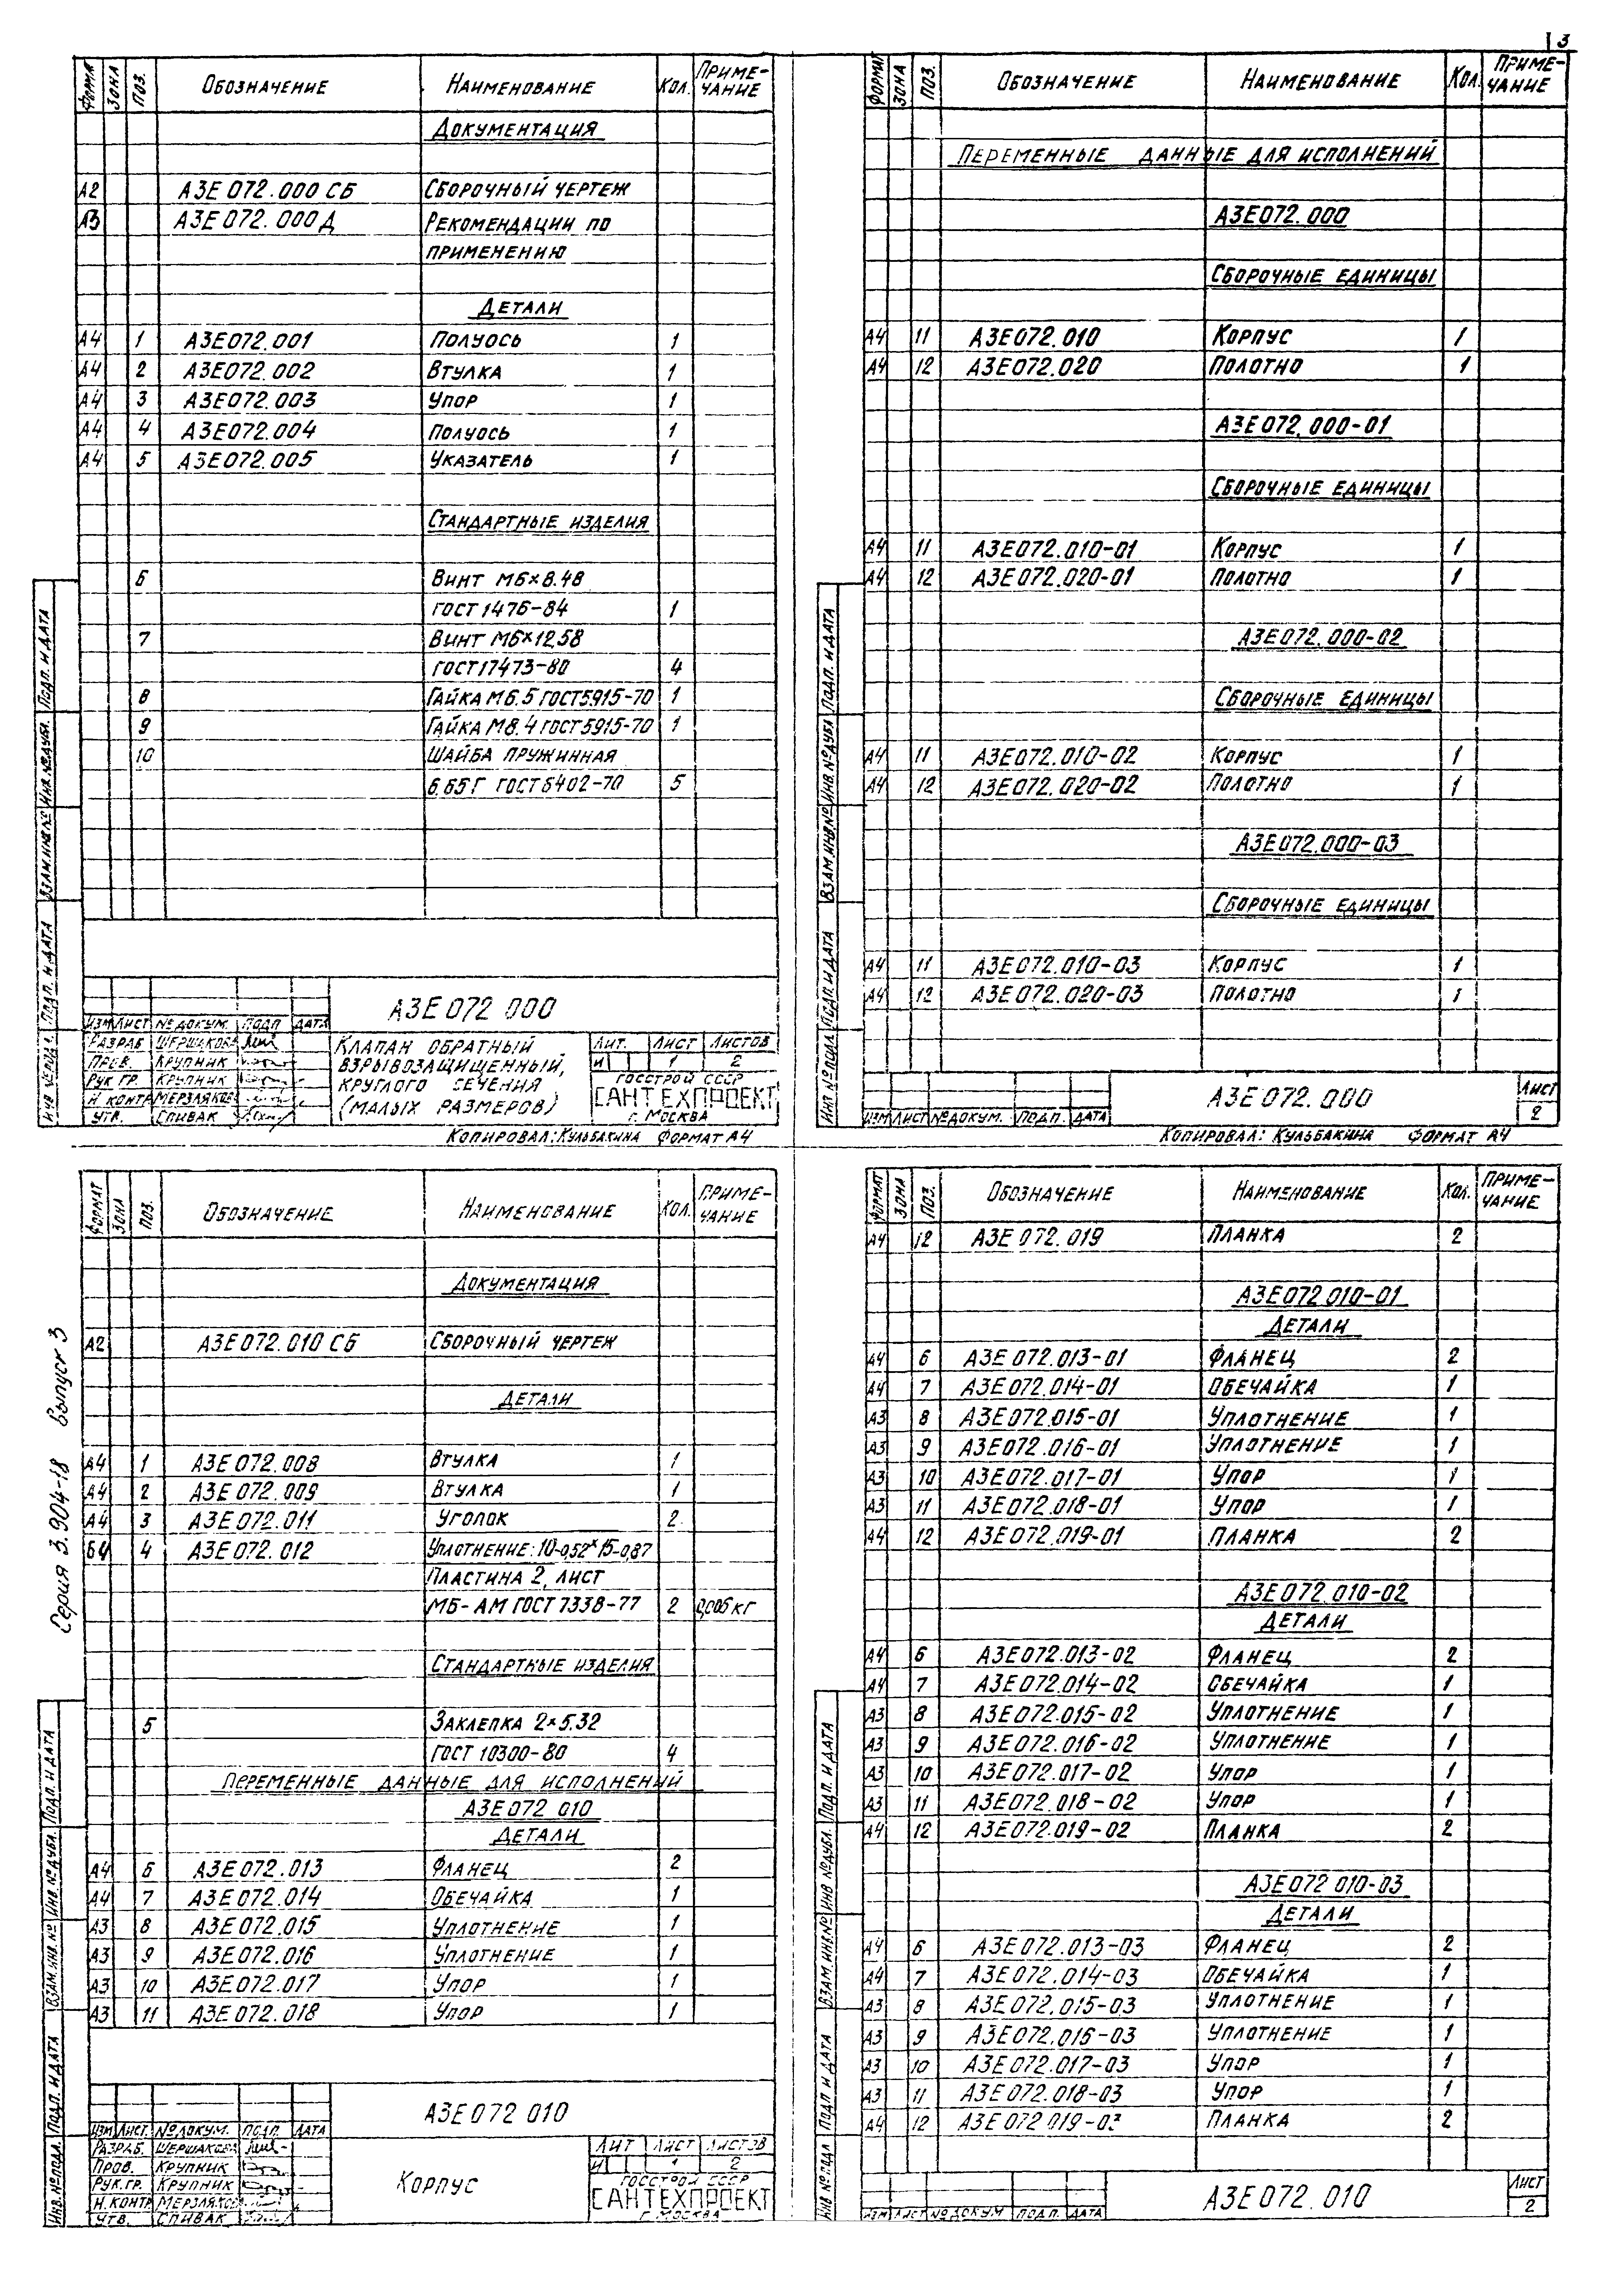 3
ФОРМАТ ЗОНА ПОЗ. ОБОЗНАЧЕНИЕ НАИМЕНОВАНИЕ КОЛ. ПРИМЕ-ЧАНИЕ
ДОКУМЕНТАЦИЯ
А2 А3Е072.000 СБ СБОРОЧНЫЙ ЧЕРТЕЖ
А3 А3Е072.000Д РЕКОМЕНДАЦИИ ПО
ПРИМЕНЕНИЮ
ДЕТАЛИ
А4 1 А3Е072.001 ПОЛУОСЬ 1
А4 2 А3Е072.002 ВТУЛКА 1
А4 3 А3Е072.003 УПОР 1
А4 4 А3Е072.004 ПОЛУОСЬ 1
А4 5 А3Е072.005 УКАЗАТЕЛЬ 1
СТАНДАРТНЫЕ ИЗДЕЛИЯ
6 ВИНТ М6×8.48
ГОСТ 1476-84 1
7 ВИНТ М6×12.58
ГОСТ 17473-80 4
8 ГАЙКА М6.5 ГОСТ 5915-70 1
9 ГАЙКА М8.4 ГОСТ 5915-70 1
10 ШАЙБА ПРУЖИННАЯ
6.65Г ГОСТ 6402-70 5
ИНВ № ПОДЛ. ПОДП. И ДАТА ВЗАМ.ИНВ.№ ИНВ.№ДУБЛ. ПОДП. И ДАТА
А3Е072 000
ИЗМ ЛИСТ № ДОКУМ. ПОДП ДАТА
РАЗРАБ ШЕРШАКОВА
ПРОВ. КРУПНИК
РУК ГР. КРУПНИК
Н. КОНТР МЕРЗЛЯКОВ
УТВ. СПИВАК
КЛАПАН ОБРАТНЫЙ
ВЗРЫВОЗАЩИЩЕННЫЙ,
КРУГЛОГО СЕЧЕНИЯ
(МАЛЫХ РАЗМЕРОВ)
ЛИТ. ЛИСТ ЛИСТОВ
И 1 2
ГОССТРОЙ СССР
САНТЕХПРОЕКТ
Г. МОСКВА
КОПИРОВАЛ: КУЛЬБАКИНА ФОРМАТ А4
ФОРМАТ ЗОНА ПОЗ. ОБОЗНАЧЕНИЕ НАИМЕНОВАНИЕ КОЛ. ПРИМЕ-ЧАНИЕ
ПЕРЕМЕННЫЕ ДАННЫЕ ДЛЯ ИСПОЛНЕНИЙ
А3Е072.000
СБОРОЧНЫЕ ЕДИНИЦЫ
А4 11 А3Е072.010 КОРПУС 1
А4 12 А3Е072.020 ПОЛОТНО 1
А3Е072.000-01
СБОРОЧНЫЕ ЕДИНИЦЫ
А4 11 А3Е072.010-01 КОРПУС 1
А4 12 А3Е072.020-01 ПОЛОТНО 1
А3Е072.000-02
СБОРОЧНЫЕ ЕДИНИЦЫ
А4 11 А3Е072.010-02 КОРПУС 1
А4 12 А3Е072.020-02 ПОЛОТНО 1
А3Е072.000-03
СБОРОЧНЫЕ ЕДИНИЦЫ
А4 11 А3Е072.010-03 КОРПУС 1
А4 12 А3Е072.020-03 ПОЛОТНО 1
ИНВ № ПОДЛ ПОДП. И ДАТА ВЗАМ.ИНВ№ ИНВ.№ДУБЛ ПОДП. И ДАТА
ИЗМ ЛИСТ № ДОКУМ. ПОДП. ДАТА
А3Е072.000
ЛИСТ
2
КОПИРОВАЛ: КУЛЬБАКИНА ФОРМАТ А4
Серия 3.904-18 Выпуск 3
ФОРМАТ ЗОНА ПОЗ. ОБОЗНАЧЕНИЕ НАИМЕНОВАНИЕ КОЛ. ПРИМЕ-ЧАНИЕ
ДОКУМЕНТАЦИЯ
А2 А3Е072.010 СБ СБОРОЧНЫЙ ЧЕРТЕЖ
ДЕТАЛИ
А4 1 А3Е072.008 ВТУЛКА 1
А4 2 А3Е072.009 ВТУЛКА 1
А4 3 А3Е072.011 УГОЛОК 2
Б4 4 А3Е072.012 УПЛОТНЕНИЕ: 10-0,52×15-0,87
ПЛАСТИНА 2, ЛИСТ
МБ-АМ ГОСТ 7338-77 2 0,006кг
СТАНДАРТНЫЕ ИЗДЕЛИЯ
5 ЗАКЛЕПКА 2×5.32
ГОСТ 10300-80 4
ПЕРЕМЕННЫЕ ДАННЫЕ ДЛЯ ИСПОЛНЕНИЙ
А3Е072 010
ДЕТАЛИ
А4 6 А3Е072.013 ФЛАНЕЦ 2
А4 7 А3Е072.014 ОБЕЧАЙКА 1
А3 8 А3Е072.015 УПЛОТНЕНИЕ 1
А3 9 А3Е072.016 УПЛОТНЕНИЕ 1
А3 10 А3Е072.017 УПОР 1
А3 11 А3Е072.018 УПОР 1
ИНВ.№ПОДЛ. ПОДП. И ДАТА ВЗАМ. ИНВ. № ИНВ.№ДУБЛ. ПОДП. И ДАТА
А3Е072 010
ИЗМ ЛИСТ № ДОКУМ. ПОДП. ДАТА
РАЗРАБ. ШЕРШАКОВА
ПРОВ. КРУПНИК
РУК.ГР. КРУПНИК
Н.КОНТР МЕРЗЛЯКОВ
УТВ. СПИВАК
КОРПУС
ЛИТ ЛИСТ ЛИСТОВ
И 1 2
ГОССТРОЙ СССР
САНТЕХПРОЕКТ
Г. МОСКВА
ФОРМАТ ЗОНА ПОЗ. ОБОЗНАЧЕНИЕ НАИМЕНОВАНИЕ КОЛ. ПРИМЕ-ЧАНИЕ
А4 12 А3Е 072.019 ПЛАНКА 2
А3Е072 010-01
ДЕТАЛИ
А4 6 А3Е072.013-01 ФЛАНЕЦ 2
А4 7 А3Е072.014-01 ОБЕЧАЙКА 1
А3 8 А3Е072.015-01 УПЛОТНЕНИЕ 1
А3 9 А3Е072.016-01 УПЛОТНЕНИЕ 1
А3 10 А3Е072.017-01 УПОР 1
А3 11 А3Е072.018-01 УПОР 1
А4 12 А3Е072.019-01 ПЛАНКА 2
А3Е072 010-02
ДЕТАЛИ
А4 6 А3Е072.013-02 ФЛАНЕЦ 2
А4 7 А3Е072.014-02 ОБЕЧАЙКА 1
А3 8 А3Е072.015-02 УПЛОТНЕНИЕ 1
А3 9 А3Е072.016-02 УПЛОТНЕНИЕ 1
А3 10 А3Е072.017-02 УПОР 1
А3 11 А3Е072.018-02 УПОР 1
А4 12 А3Е072.019-02 ПЛАНКА 2
А3Е072 010-03
ДЕТАЛИ
А4 6 А3Е072.013-03 ФЛАНЕЦ 2
А4 7 А3Е072.014-03 ОБЕЧАЙКА 1
А3 8 А3Е072.015-03 УПЛОТНЕНИЕ 1
А3 9 А3Е072.016-03 УПЛОТНЕНИЕ 1
А3 10 А3Е072.017-03 УПОР 1
А3 11 А3Е072.018-03 УПОР 1
А4 12 А3Е072 019-03 ПЛАНКА 2
ИНВ № ПОДЛ ПОДП И ДАТА ВЗАМ.ИНВ.№ ИНВ №ДУБЛ. ПОДП. И ДАТА
ИЗМ ЛИСТ № ДОКУМ ПОДП. ДАТА
А3Е072.010
ЛИСТ
2